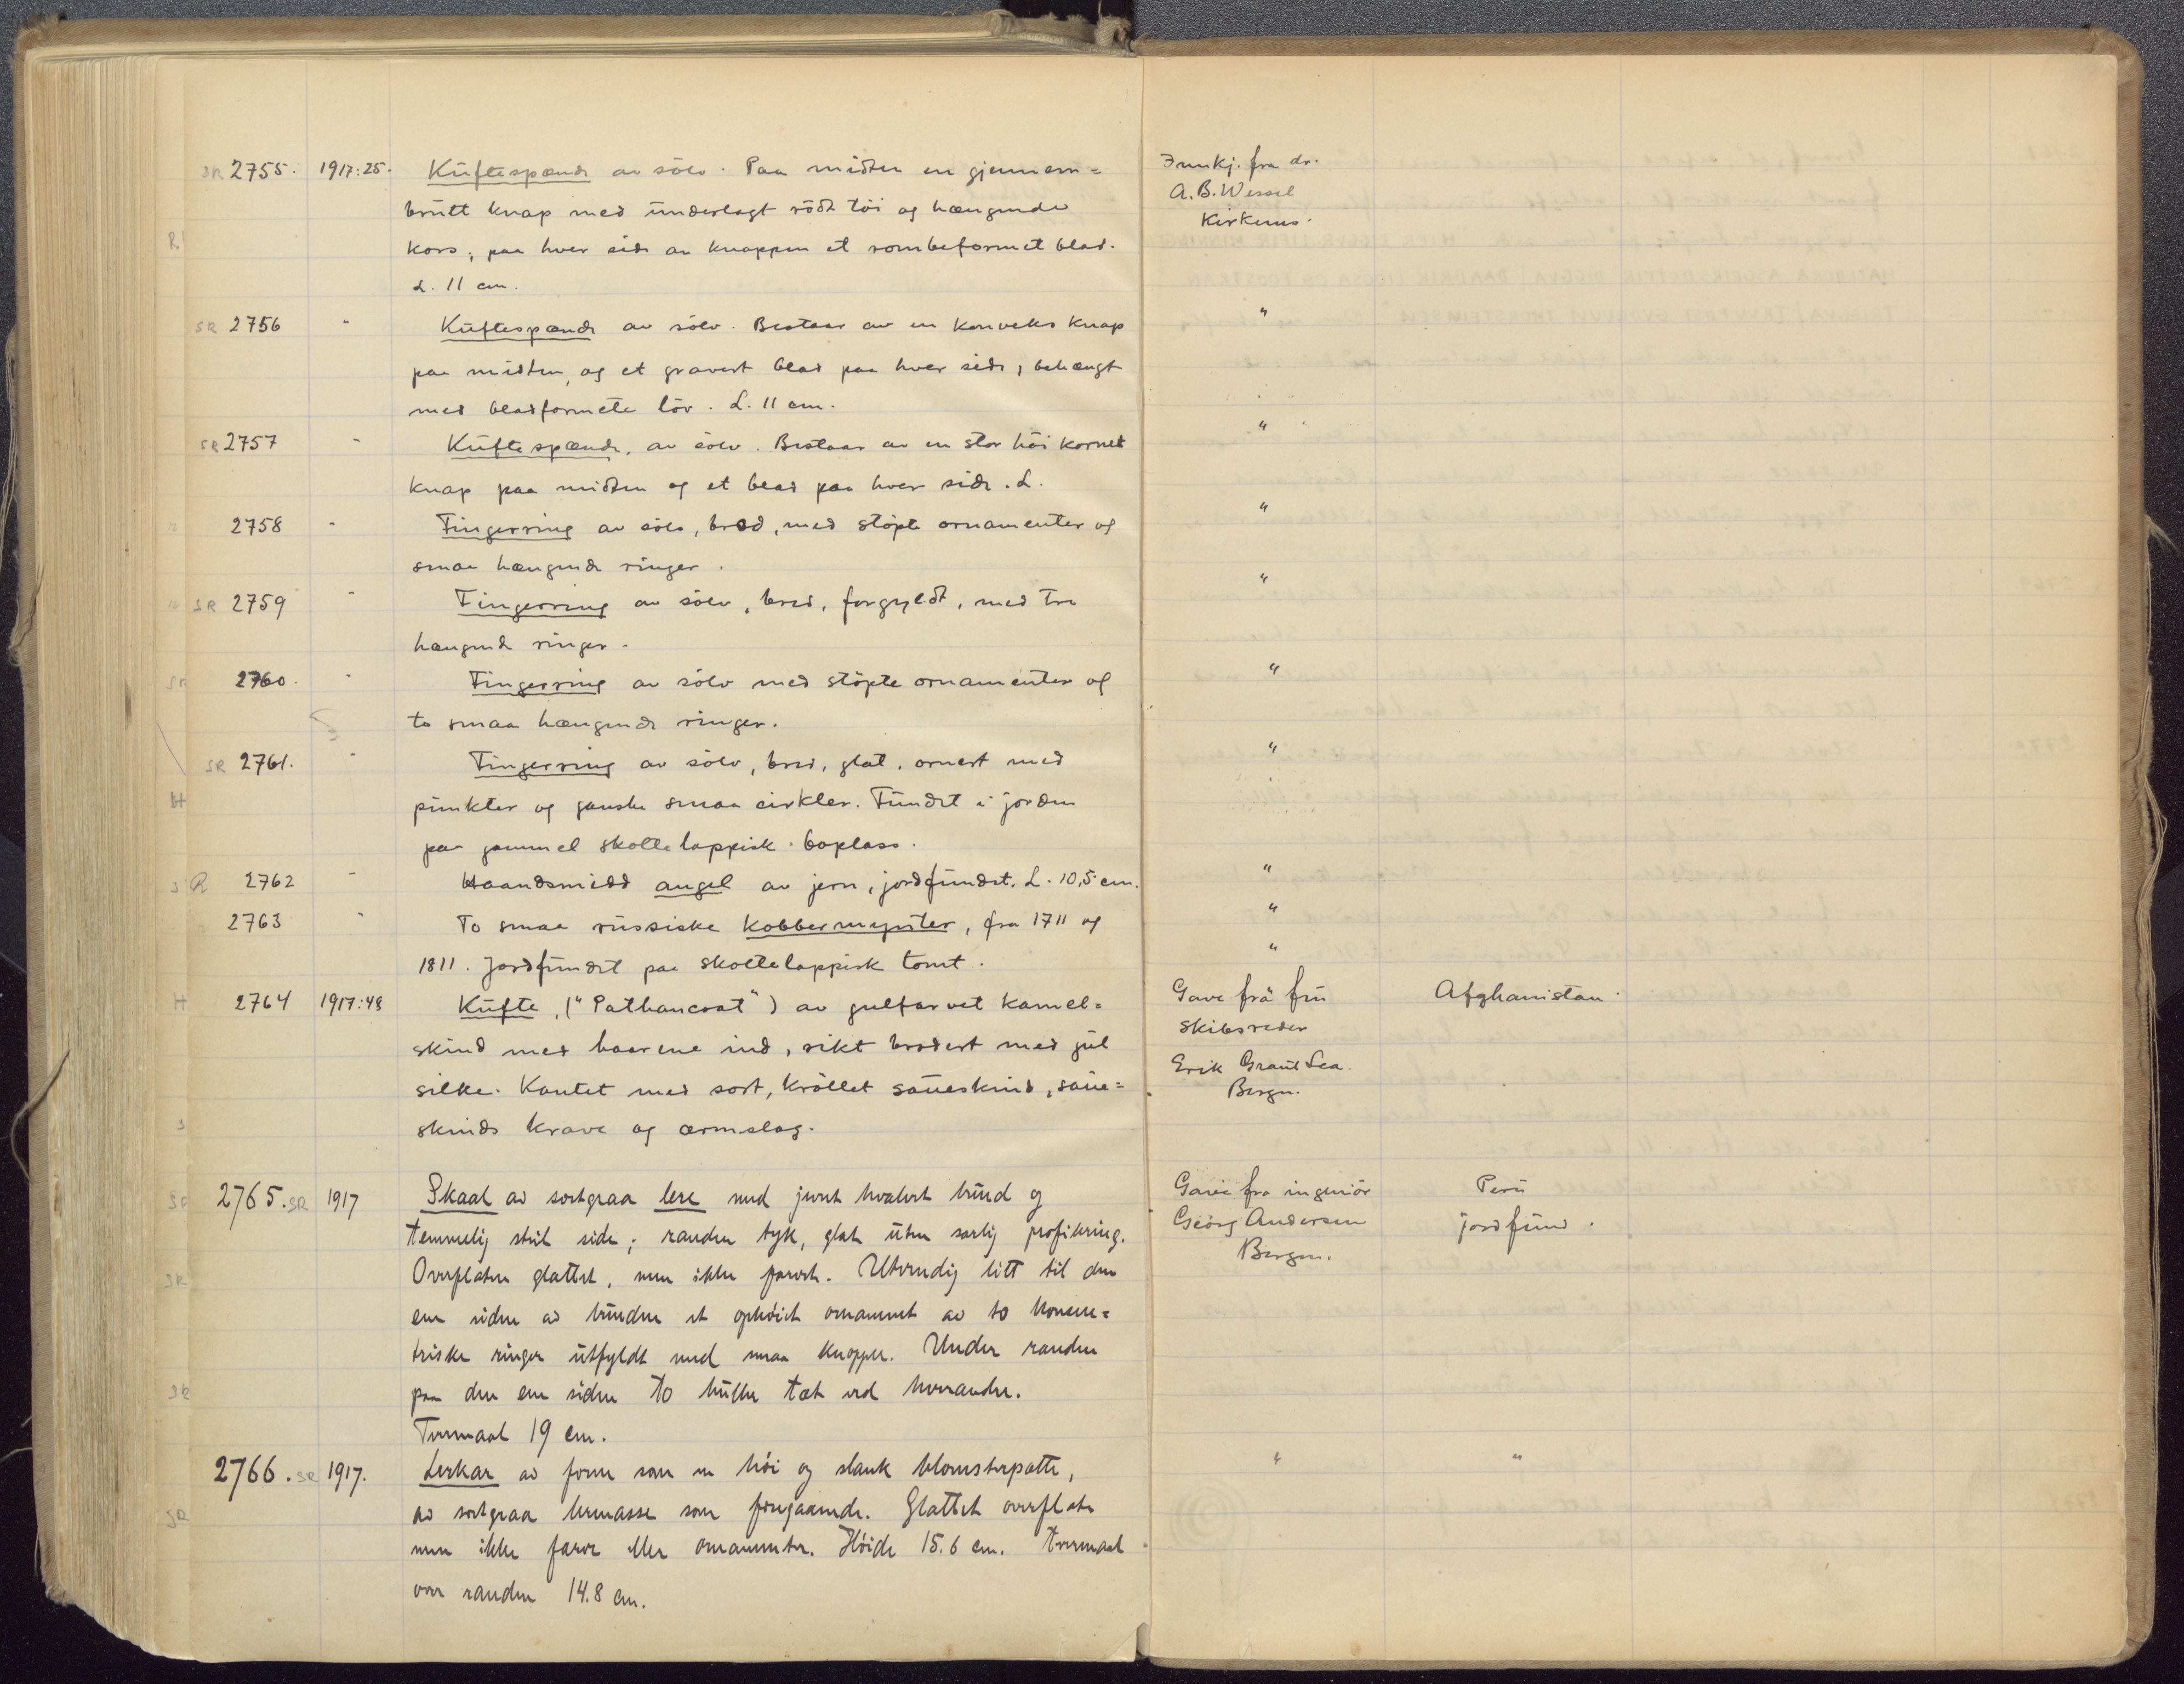 SR 2755. 1917:25. Kuftespænde av sölv. Paa midten en gjennem= Innkj. fra dr.
brutt knap med underlagt rödt töi og hængende A.B. Wessel
kors; paa hver side av knappen et rombeformet blad. Kirkenes.
L. 11 cm.
SR 2756 " Kuftespænde av sölv. Bestaar av en konveks knap "
paa midten, og et gravert blad paa hver side, behængt
med bladformete löv. L. 11 cm.
SR 2757 " Kuftespænde, av sölv. Bestaar av en stor höi kornet "
knap paa midten og et blad paa hver side. L.
2758 " Fingerring av sölv, bred, med stöpte ornamenter og "
smaa hængende ringer.
SR 2759 " Fingerring av sölv, bred, forgyldt, med tre "
hængende ringer.
SR 2760. " Fingerring av sölv med stöpte ornamenter og "
to smaa hængende ringer.
SR 2761. " Fingerring av sölv, bred, glat, ornert med "
punkter og ganske smaa cirkler. Fundet i jorden
paa gammel skoltelappisk boplass.
SR 2762 " Haandsmidd angel av jern, jordfundet. L. 10,5 cm. "
2763 " To smaa russiske kobbermynter, fra 1711 og "
1811. Jordfundet paa skoltelappisk tomt. "
H 2764 1917:48 Kufte, ("Pathancoat") av gulfarvet kamel= Gave frå fru Afghanistan.
skind med haarene ind, rikt brodert med gul skibsreder
silke. Kantet med sort, kröllet saueskind, saue= Erik Grant Lea.
skinds krave og ærmslag. Bergen.
2765. SR 1917 Skaal av sortgraa lere med jevnt hvælvet bund og Gave fra ingeniör Peru
temmelig steil side; randen tyk, glat uten særlig profilering. Georg Andersen jordfund.
Overflaten glattet, men ikke farvet. Utvendig litt til den Bergen.
ene siden av bunden et ophöiet ornament av to koncen=
triske ringer utfyldt med smaa knopper. Under randen
paa den ene siden to huller tæt ved hverandre.
Tvermaal 19 cm.
2766. SR 1917. Lerkar av form som en höi og slank blomsterpotte, " "
av sortgraa lermasse som foregaaende. Glattet overflate
men ikke farve eller ornamenter. Höide 15.6 cm. Tvermaal
over randen 14.8 cm.